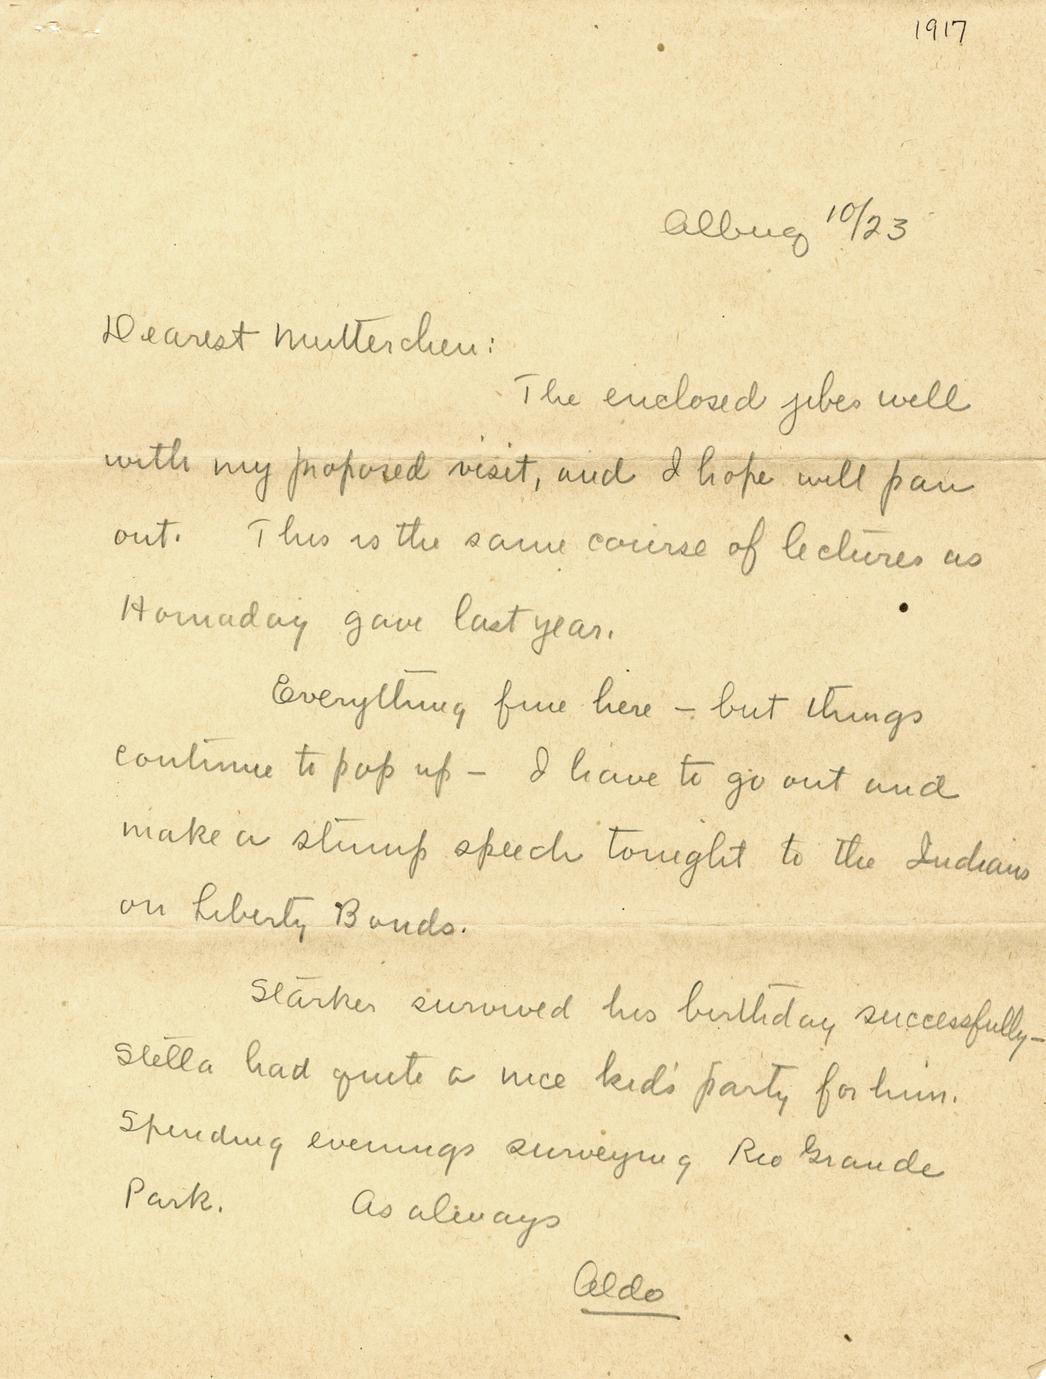 1917
Albuq 10/23
Dearest Mutterchen:
The enclosed jibes well
with my proposed visit, and I hope will pan
out. This is the same course of lectures as
Hornaday gave last year.
Everything fine here – but things
continue to pop up – I have to go out and
make a stump speech tonight to the Indians
on Liberty Bonds.
Starker survived his birthday successfully–
Stella had quite a nice kid's party for him.
Spending evenings surveying Rio Grande
Park. As always
Aldo